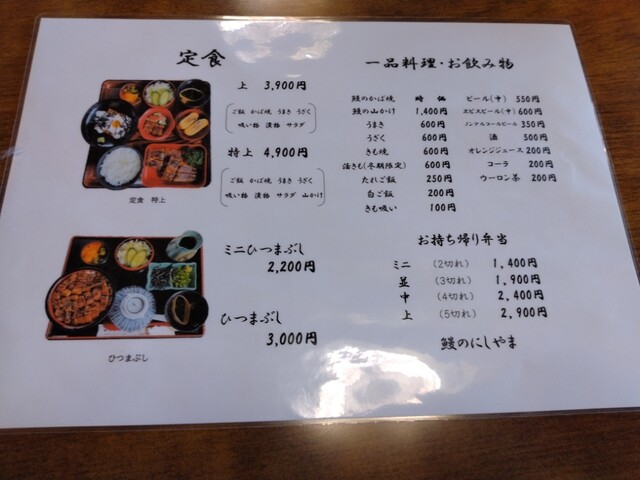 定食
上 3,900円
ご飯 かば焼 うまき うざく
吸い物 漬物 サラダ
特上 4,900円
ご飯 かば焼 うまき うざく
吸い物 漬物 サラダ 山かけ
定食 特上
ミニひつまぶし
2,200円
ひつまぶし
3,000円
ひつまぶし
一品料理・お飲み物
鰻のかば焼 時価
鰻の山かけ 1,400円
うまき 600円
うざく 600円
きも焼 600円
活きも(冬期限定) 600円
たれご飯 250円
白ご飯 200円
きも吸い 100円
ビール(中) 550円
ヱビスビール(中) 600円
ノンアルコールビール 350円
酒 500円
オレンジジュース 200円
コーラ 200円
ウーロン茶 200円
お持ち帰り弁当
ミニ (2切れ) 1,400円
並 (3切れ) 1,900円
中 (4切れ) 2,400円
上 (5切れ) 2,900円
鰻のにしやま